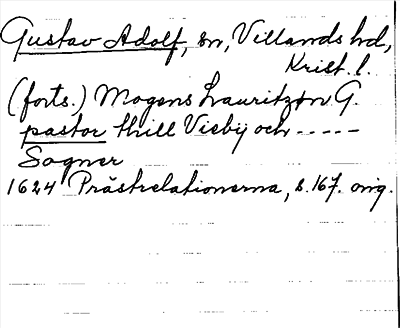 Gustav Adolf, sn, Villands hd,
Krist. l.
(forts.) Mogens Lauritzøn G.
pastor thill Vieby och -----
Sogner
1624 Prästrelationerna, s. 167. orig.